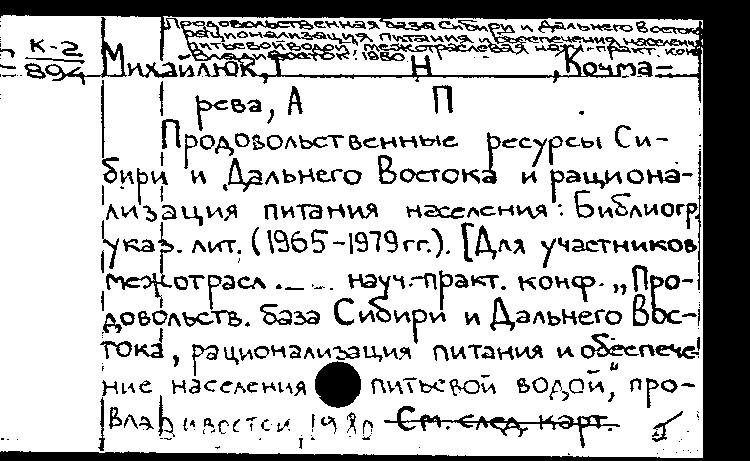 Продовольственная база Сибири и Дальнего Востока
рационализация питания и обеспечения населения
питьевой водой, межотраслевая науч.-практ. кон
Владивосток, 1980
К-2
894
Михайлюк, Г Н , Кочма=
рева, А П
Продовольственные ресурсы Си-
бири и Дальнего Востока и рациона-
лизация питания населения: Библиогр.
указ. лит. (1965-1979 гг.). [Для участников
межотрасл. науч.-практ. конф. „Про-
довольств. база Сибири и Дальнего Вос-
тока, рационализация питания и обеспече
ние населения питьевой водой", про-
Владивосток, 1980 См. след. карт.